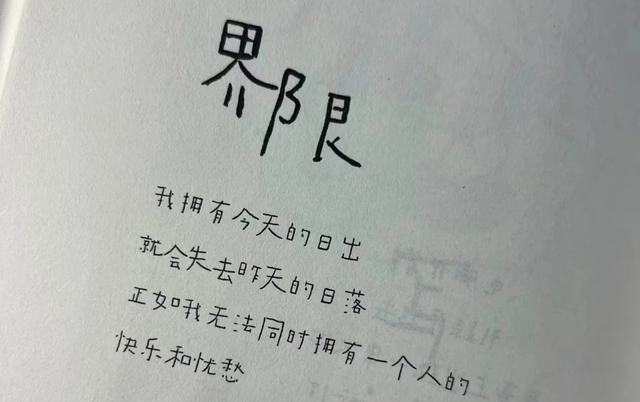 界限
我拥有今天的日出
就会失去昨天的日落
正如我无法同时拥有一个人的
快乐和忧愁